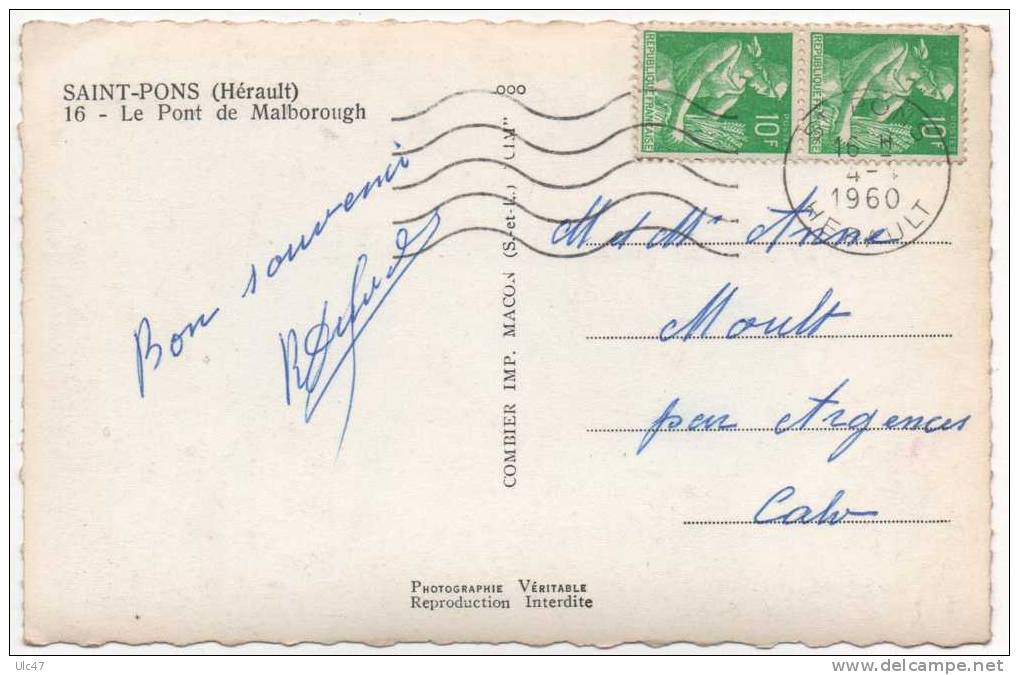 SAINT-PONS (Hérault)
16 - Le Pont de Malborough
Bon souvenir
COMBIER IMP. MACON (S.-et-L.) "CIM"
REPUBLIQUE FRANÇAISE
POSTES
10F
REPUBLIQUE FRANÇAISE
POSTES
10F
16 H
1960
HERAULT
M et Me Anne
Moult
par Argences
Calv
PHOTOGRAPHIE VÉRITABLE
Reproduction Interdite
Ulc47
delcampe.net